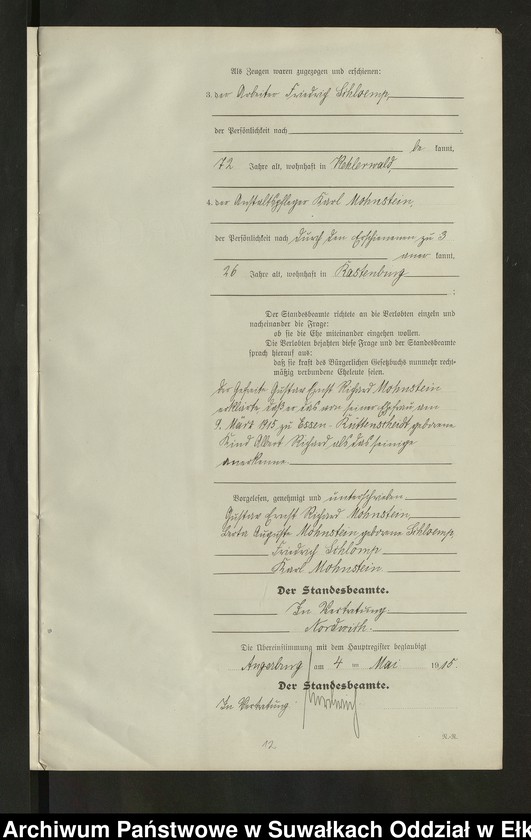 Als Zeugen waren zugezogen und erschienen:
3. der Arbeiter Friedrich Schloemp,
der Persönlichkeit nach
be kannt,
72 Jahre alt, wohnhaft in Kehlerwald,
4. der Anstaltspfleger Karl Mohnstein,
der Persönlichkeit nach durch den Erschienenen zu 3
aner kannt,
26 Jahre alt, wohnhaft in Rastenburg
Der Standesbeamte richtete an die Verlobten einzeln und
nacheinander die Frage:
ob sie die Ehe miteinander eingehen wollen.
Die Verlobten bejahten diese Frage und der Standesbeamte
sprach hierauf aus:
daß sie kraft des Bürgerlichen Gesetzbuchs nunmehr recht-
mäßig verbundene Eheleute seien.
Der Gefreite Gustav Ernst Richard Mohnstein
erklärte daß er das von seiner Ehefrau am
9. März 1915 zu Essen-Rüttenscheidt geborene
Kind Albert Richard als das seinige
anerkenne
Vorgelesen, genehmigt und unterschrieben
Gustav Ernst Richard Mohnstein
Berta Auguste Mohnstein geborene Schloemp
Friedrich Schlömp
Karl Mohnstein
Der Standesbeamte.
In Vertretung
Nordwich.
Die Übereinstimmung mit dem Hauptregister beglaubigt
Angerburg am 4 ten Mai 1915.
Der Standesbeamte.
In Vertretung
12.
R.-R.
Archiwum Państwowe w Suwałkach Oddział w Ełk